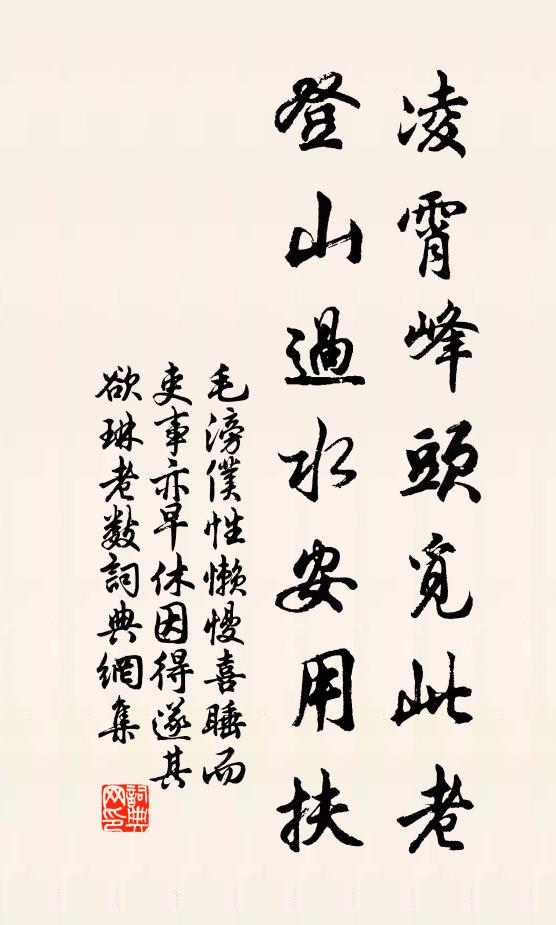 凌霄峰頭覓此老
登山過水安用扶
毛滂僕性懒慢喜睡而
吏事亦早休因得遂其
欲琳老數詞典網集
詞典网印